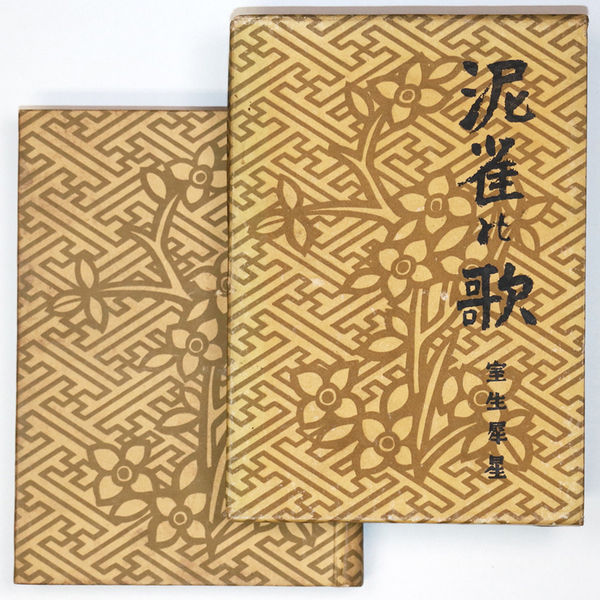 泥雀の歌
室生犀星